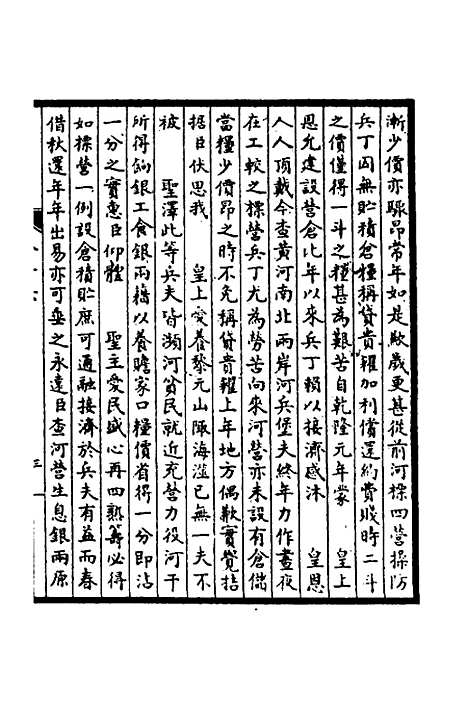 漸少價亦驟昂常年如是歉歲更甚從前河標四營操防
兵丁因無貯積倉糧稱貸貴糴加利償還約費賤時二斗
之價僅得一斗之糧甚為艱苦自乾隆元年蒙　皇上
恩允建設營倉比年以來兵丁賴以接濟感沐　皇恩
人人頂戴今查黃河南北兩岸河兵堡夫終年力作晝夜
在工較之標營兵丁尤為勞苦向來河營亦未設有倉儲
當糧少價昂之時不免稱貸貴糴上年地方偶歉實覺拮
据臣伏思我　皇上愛養黎元山陬海澨已無一夫不
被　聖澤此等兵夫皆瀕河貧民就近充營力役河干
所得餉銀工食銀兩藉以養贍家口糧價省得一分即沾
一分之實惠臣仰體　聖主愛民盛心再四熟籌必得
如標營一例設倉積貯庶可通融接濟於兵夫有益而春
借秋還年年出易亦可垂之永遠臣查河營生息銀兩原
三